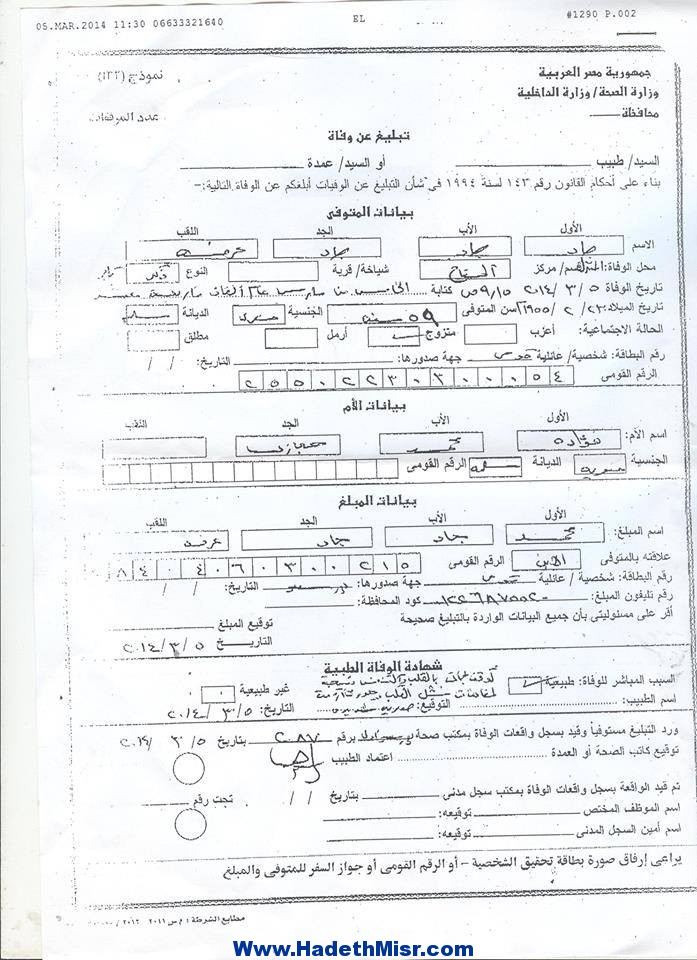 05.MAR.2014 11:30 06633321640 EL #1290 P.002
جمهورية مصر العربية
نموذج (١٢٢)
وزارة الصحة / وزارة الداخلية
محافظة
عدد المرفقات
تبليغ عن وفاة
السيد/ طبيب أو السيد/ عمدة
بناء على أحكام القانون رقم ١٤٣ لسنة ١٩٩٤ فى شأن التبليغ عن الوفيات أبلغكم عن الوفاة التالية:-
بيانات المتوفى
الأول الأب الجد اللقب
الاسم جاد جاد جاد
محل الوفاة: المنزل قسم/ مركز شياخة/ قرية النوع ذكر
تاريخ الوفاة ٥ / ٣ / ٢٠١٤ ص ٩/١٥ كتابة الخامس من مارس عام ألفان
تاريخ الميلاد ٢٣ / ٢ / ١٩٥٥ سن المتوفى ٥٩ سنة الجنسية مصرى الديانة مسلم
الحالة الاجتماعية: أعزب متزوج أرمل مطلق
رقم البطاقة: شخصية/ عائلية جهة صدورها: التاريخ: / /
الرقم القومى ٢٥٥٠٢٢٣٠٣٠٠٠٥٤
بيانات الأم
الأول الأب الجد اللقب
اسم الأم: محمد حجازى
الجنسية مصرية الديانة مسلمة الرقم القومى
بيانات المبلغ
الأول الأب الجد اللقب
اسم المبلغ: محمد جاد جاد
علاقته بالمتوفى الابن الرقم القومى ٨٤٠٤٠٦٠٣٠٠٢١٥
رقم البطاقة: شخصية / عائلية جهة صدورها: التاريخ: / /
رقم تليفون المبلغ: كود المحافظة:
أقر على مسئوليتى بأن جميع البيانات الواردة بالتبليغ صحيحة
توقيع المبلغ
التاريخ ٥ / ٣ / ٢٠١٤
شهادة الوفاة الطبية
السبب المباشر للوفاة: طبيعية توقف بالقلب والتنفس نتيجة غير طبيعية
اسم الطبيب: التوقيع: التاريخ: ٥ / ٣ / ٢٠١٤
ورد التبليغ مستوفيا وقيد بسجل واقعات الوفاة بمكتب صحة برقم ٢٠٨٧ بتاريخ ٥ / ٣ / ٢٠١٤
توقيع كاتب الصحة أو العمدة اعتماد الطبيب
تم قيد الواقعة بسجل واقعات الوفاة بمكتب سجل مدنى بتاريخ / / تحت رقم
اسم الموظف المختص توقيعه:
اسم أمين السجل المدنى توقيعه:
يراعى إرفاق صورة بطاقة تحقيق الشخصية - أو الرقم القومى أو جواز السفر للمتوفى والمبلغ
مطابع الشرطة : م س ٢٠١١ / ٢٠١٢
www.HadethMisr.com